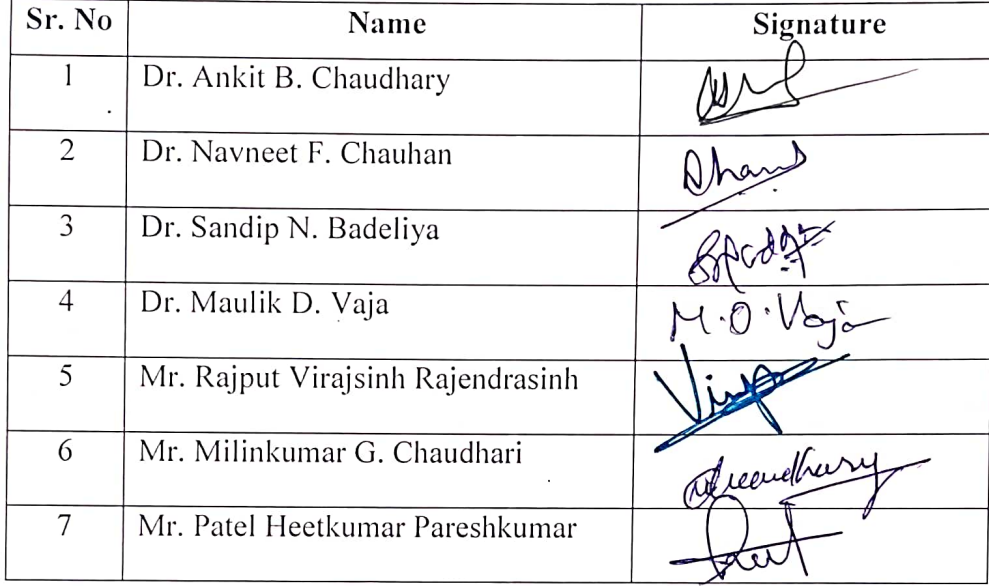 Sr. No Name Signature
1 Dr. Ankit B. Chaudhary
2 Dr. Navneet F. Chauhan
3 Dr. Sandip N. Badeliya
4 Dr. Maulik D. Vaja M.D.Vaja
5 Mr. Rajput Virajsinh Rajendrasinh
6 Mr. Milinkumar G. Chaudhari
7 Mr. Patel Heetkumar Pareshkumar